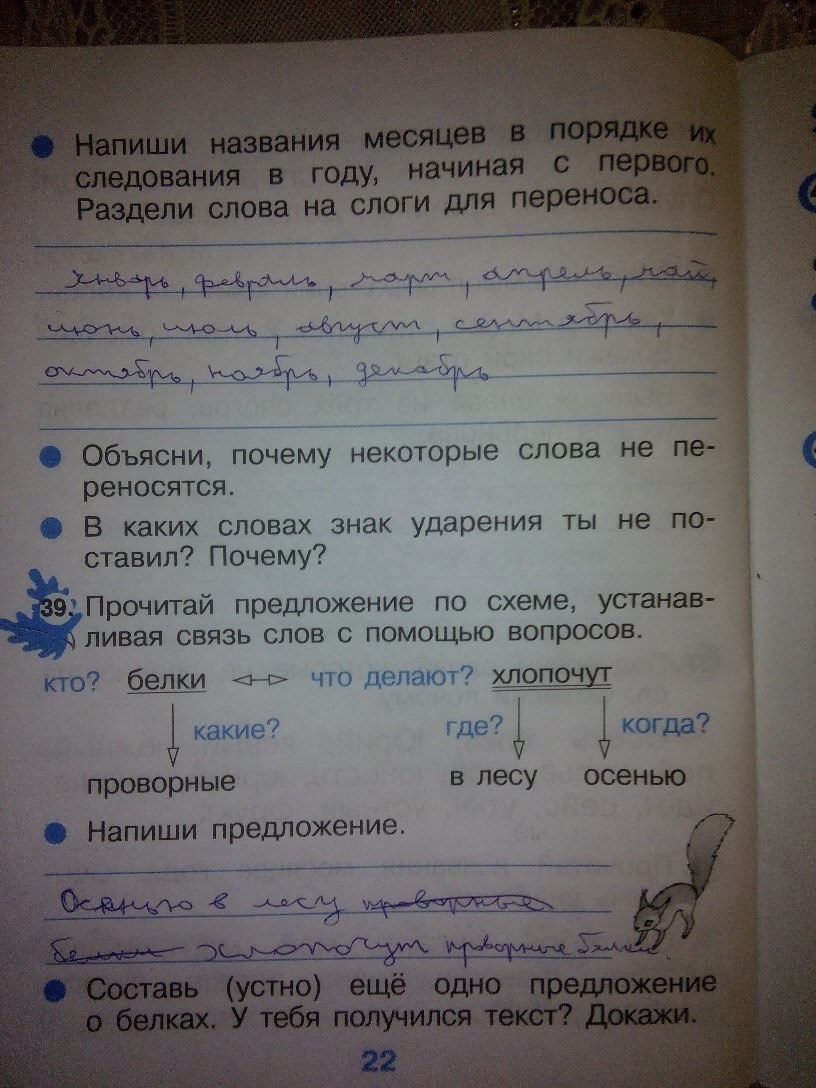 Напиши названия месяцев в порядке их
следования в году, начиная с первого.
Раздели слова на слоги для переноса.
январь, февраль, март, апрель, май,
июнь, июль, август, сентябрь,
октябрь, ноябрь, декабрь
Объясни, почему некоторые слова не пе-
реносятся.
В каких словах знак ударения ты не по-
ставил? Почему?
39. Прочитай предложение по схеме, устанав-
ливая связь слов с помощью вопросов.
кто? белки что делают? хлопочут
какие? где? когда?
проворные в лесу осенью
Напиши предложение.
Осенью в лесу проворные
белки хлопочут проворные белки.
Составь (устно) ещё одно предложение
о белках. У тебя получился текст? Докажи.
22